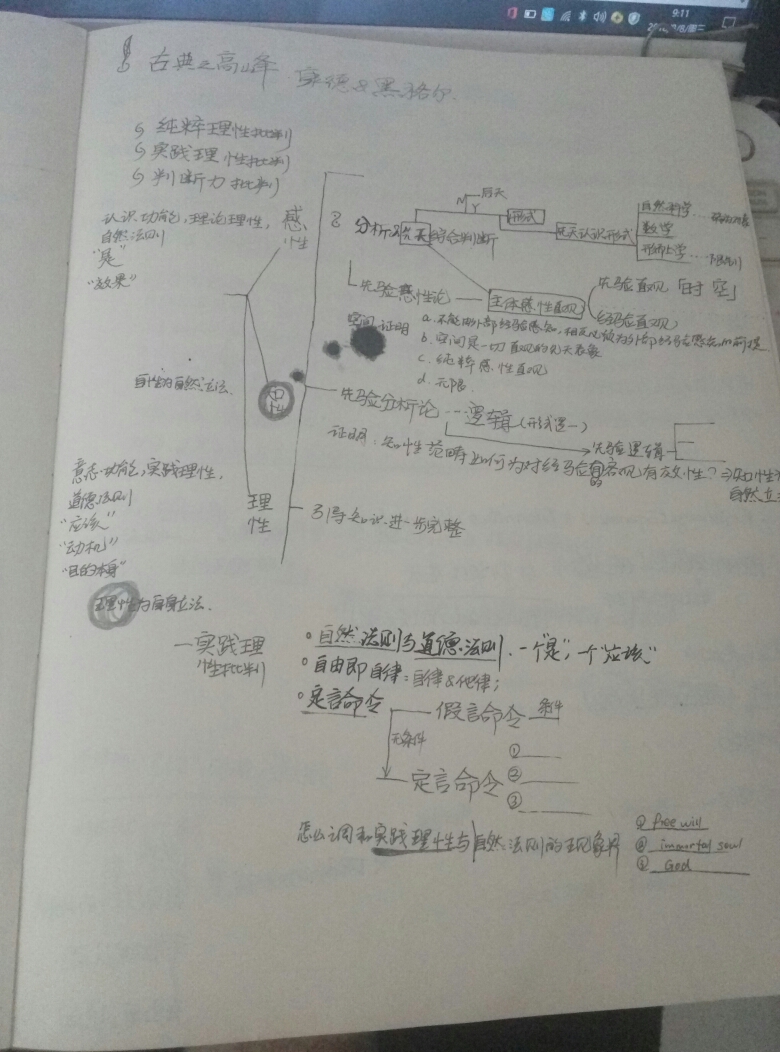 9:11
古典之高峰 康德&黑格尔.
纯粹理性批判
实践理性批判
判断力批判
认识功能, 理论理性,
自然法则
"是"
"效果"
感性
分析&先天综合判断
后天
形式
先天认识形式
自然科学
数学
形而上学
先验感性论
主体感性直观
先验直观「时 空」
经验直观
空间证明
b. 空间是一切直观的先天表象
c. 纯粹感性直观
d. 无限.
知性
自然立法.
先验分析论 -- 逻辑(形式逻-)
先验逻辑
证明: 知性范畴如何为对经验有客观有效性?
的
知性
自然立
意志功能, 实践理性,
道德法则
"应该"
"动机"
"目的本身"
理性
引导知识进一步完整
理性为自身立法.
一实践理
性批判
自然法则与道德法则. 一个"是", 一个"应该"
自由即自律: 自律&他律;
定言命令
假言命令 条件
无条件
定言命令
①
②
③
怎么调和实践理性与自然法则的
free will
immortal soul
God